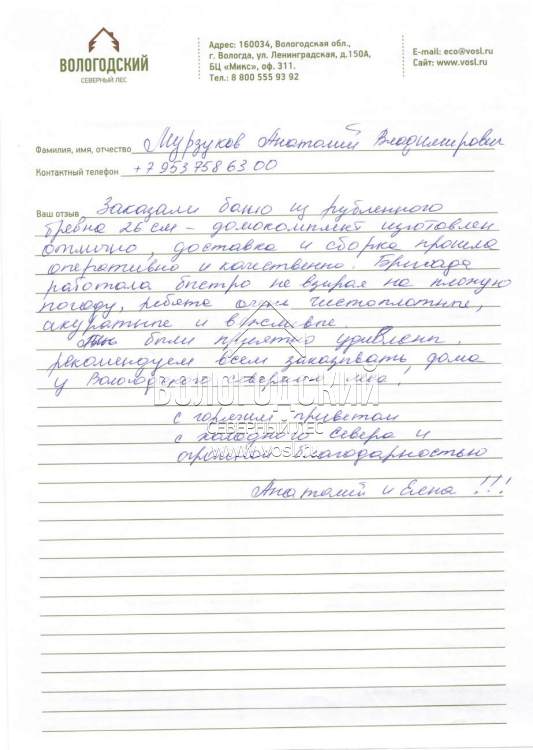 ВОЛОГОДСКИЙ
СЕВЕРНЫЙ ЛЕС
Адрес: 160034, Вологодская обл.,
г. Вологда, ул. Ленинградская, д.150А,
БЦ «Микс», оф. 311.
Тел.: 8 800 555 93 92
E-mail: eco@vosl.ru
Сайт: www.vosl.ru
Фамилия, имя, отчество Мурзуков Анатолий Владимирович
Контактный телефон +7 953 758 63 00
Ваш отзыв Заказали баню из рубленного
бревна 26 см - домокомплект изготовлен
отлично, доставка и сборка прошла
оперативно и качественно. Бригада
работала быстро не взирая на плохую
погоду, ребята очень чистоплотные,
акуратные и вежливые.
были приятно удивлены.
рекомендуем всем заказывать дома
у Вологодского северного леса.
ВОЛОГОДСКИЙ
СЕВЕРНЫЙ ЛЕС
www.vosl.ru
с горячим приветом
с холодного севера и
огромной благодарностью
Анатолий и Елена !!!